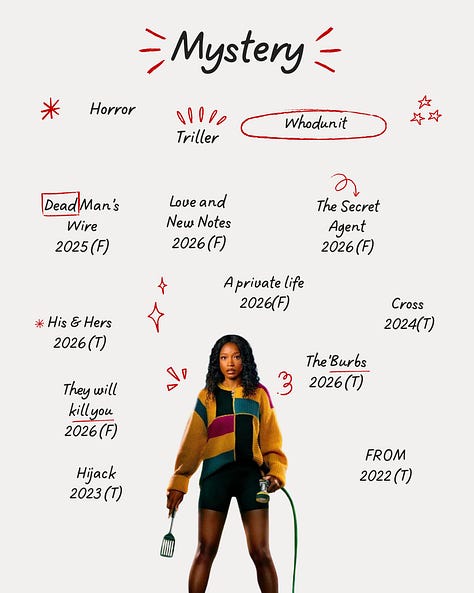 Mystery
Horror
Triller
Whodunit
Dead Man's
Wire
2025 (F)
Love and
New Notes
2026 (F)
The Secret
Agent
2026 (F)
A private life
2026(F)
Cross
2024(T)
His & Hers
2026 (T)
The'Burbs
2026 (T)
They will
kill you
2026 (F)
FROM
2022 (T)
Hijack
2023 (T)